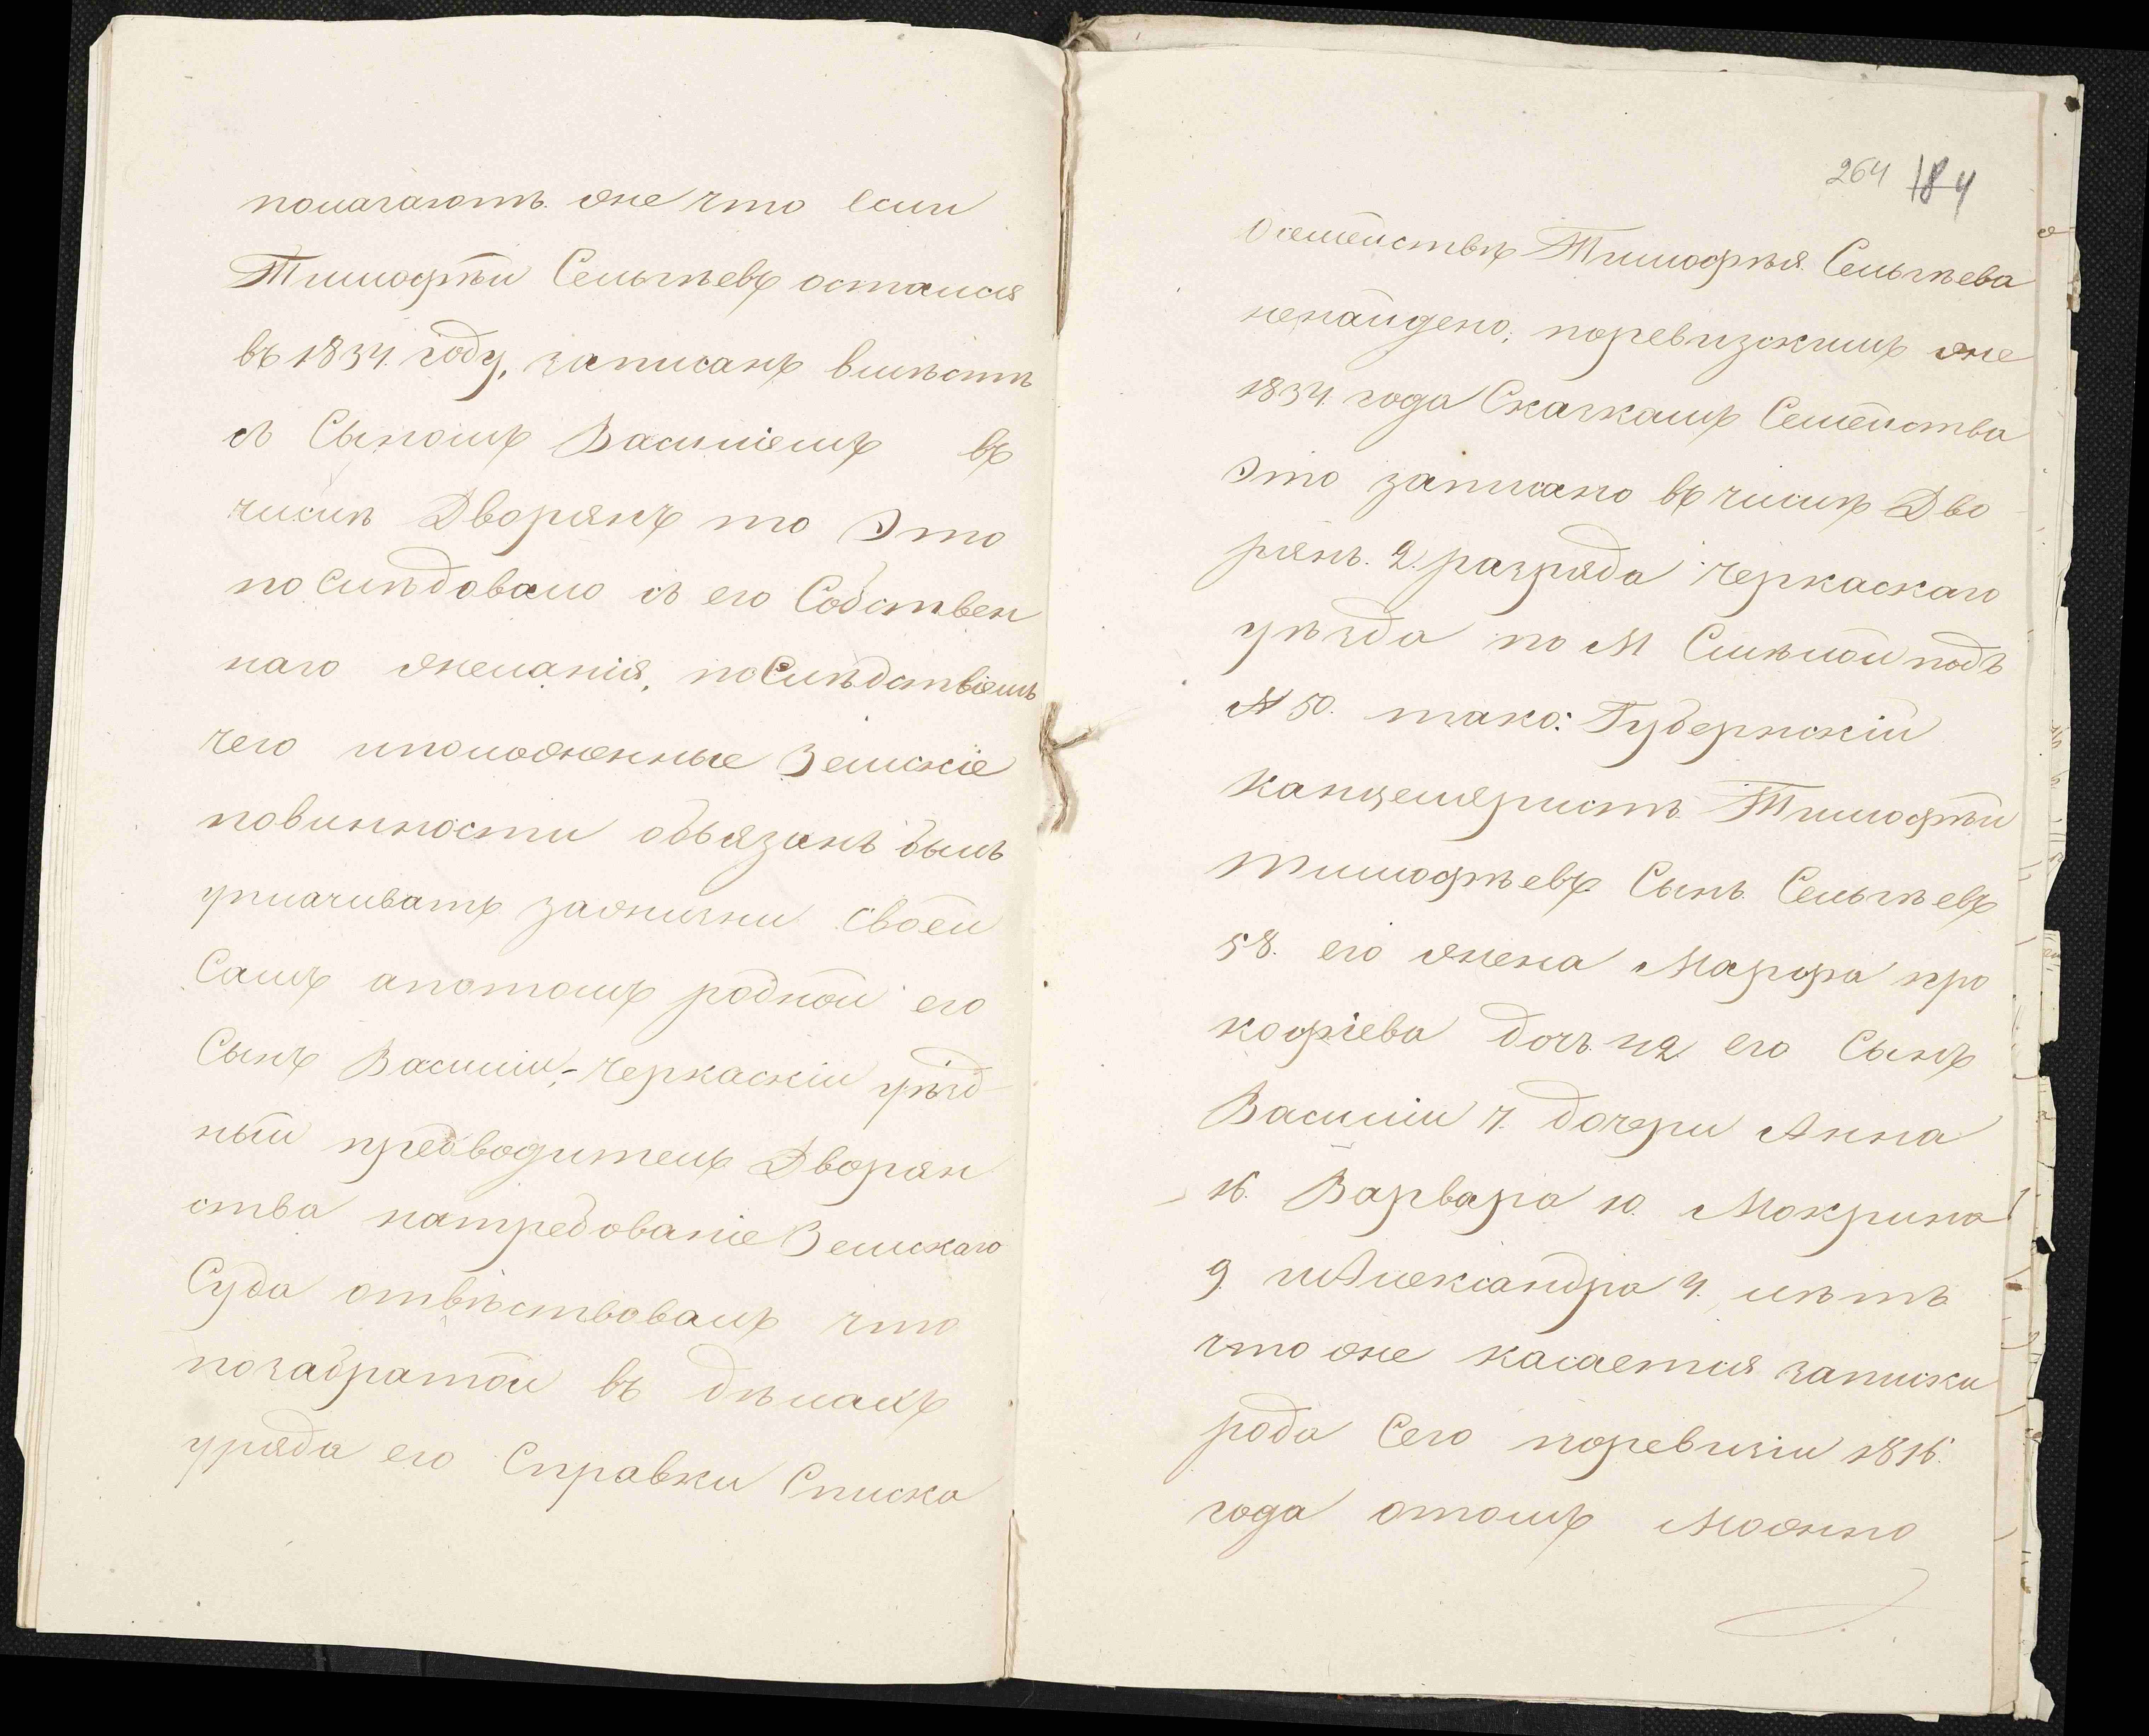 полагаютъ же что если
Тимофѣй Сельгѣевъ остался
въ 1834. году, записанъ вмѣстѣ
съ Сыномъ Василіемъ въ
числѣ Дворянъ то Это
по Слѣдовало съ его Собствен
наго желанія, по Слѣдствіемъ
чего иположенные Земскіе
повинности обьязанъ былъ
уплачивать зажизни Своей
Самъ апотомъ родной его
Сынъ Василій,- Черкаскій уѣзд-
ный предводитель Дворян
ства натребованіе Земскаго
Суда отвѣтствовалъ что
позабратой въ дѣлахъ
уряда его Справки Списка
264 184
Осемействѣ Тимофѣя Сельгѣева
ненайдено, поревизскимъ же
1834. года Сказкамъ Семейства
Это записано въ числѣ Дво
рянъ. 2. разряда Черкаскаго
уѣзда по М Смѣлой подъ
№ 50. тако: Губернскій
канцеляристъ Тимофѣй
Тимофѣевъ Сынъ Сельгѣевъ
58. его жена Марфа про
кофіева дочь 42 его Сынъ
Василій 7. дочери Анна
16. Варвара 10. Мокрина
9. иАлександра 4. лѣтъ
что же касается записки
рода Сего поревизіи 1816.
года отомъ Можно